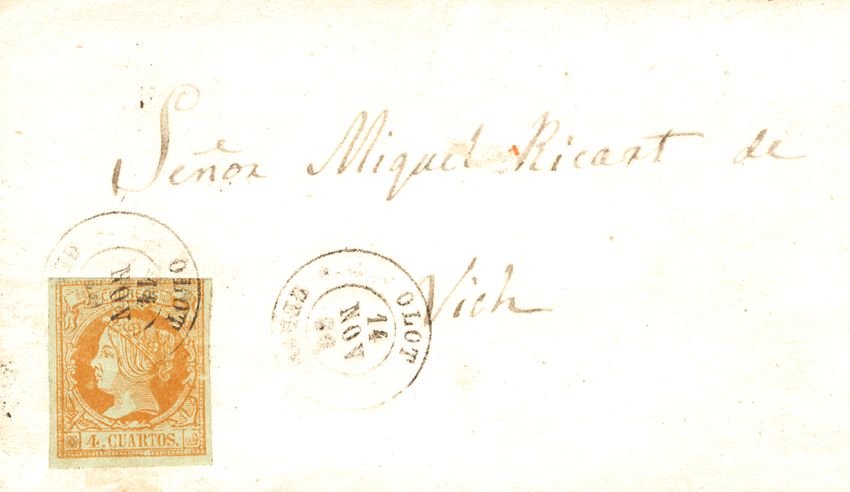 Señor Miguel Ricart de
Vich
OLOT
14
NOV
OLOT
14
NOV
4. CUARTOS.